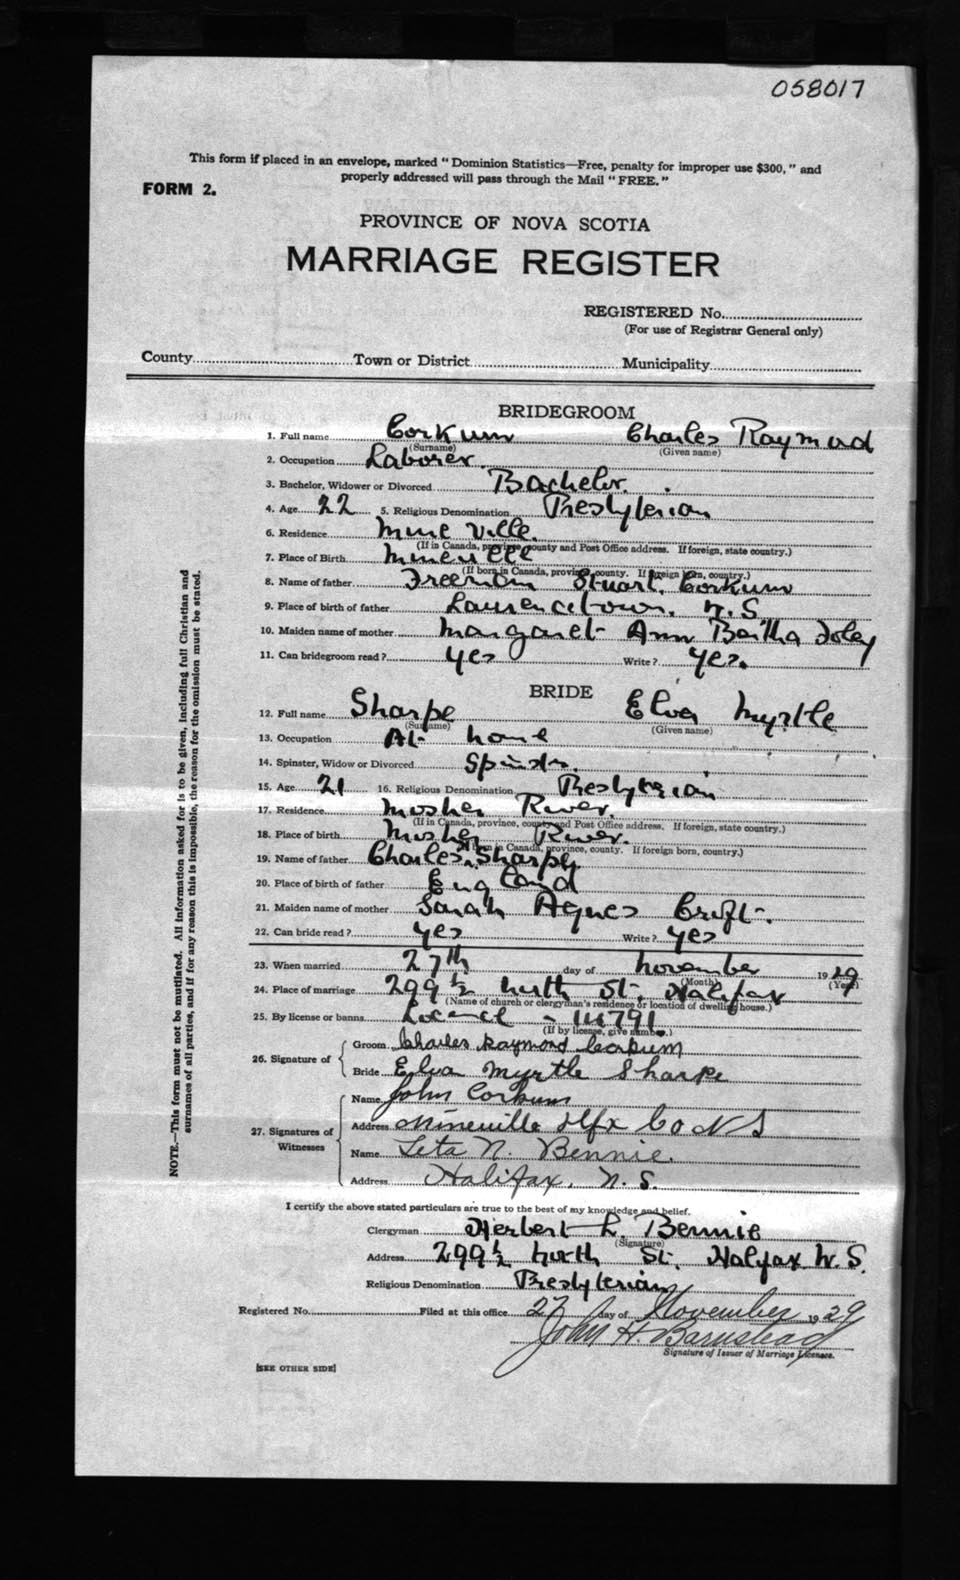 058017
This form if placed in an envelope, marked “ Dominion Statistics—Free, penalty for improper use $300, ” and
properly addressed will pass through the Mail “ FREE. ”
FORM 2.
PROVINCE OF NOVA SCOTIA
MARRIAGE REGISTER
REGISTERED No.
(For use of Registrar General only)
County Town or District Municipality
BRIDEGROOM
1. Full name Corkum Charles Raymond
(Surname) (Given name)
2. Occupation Laborer.
3. Bachelor, Widower or Divorced Bachelor.
4. Age 22 5. Religious Denomination Presbyterian
6. Residence Mine Ville.
(If in Canada, province county and Post Office address. If foreign, state country.)
7. Place of Birth Mineville
(If born in Canada, province, county. If foreign born, country.)
8. Name of father Freeman Stuart Corkum
9. Place of birth of father Laurencetown. N.S
10. Maiden name of mother Margaret Ann Bertha Foley
11. Can bridegroom read? yes Write? yes.
BRIDE
12. Full name Sharpe Elva Myrtle
(Surname) (Given name)
13. Occupation At home
14. Spinster, Widow or Divorced Spinster.
15. Age 21 16. Religious Denomination Presbyterian
17. Residence Mosher River.
(If in Canada, province, county and Post Office address. If foreign, state country.)
18. Place of birth Mosher River.
(If born in Canada, province, county. If foreign born, country.)
19. Name of father Charles Sharpe
20. Place of birth of father England
21. Maiden name of mother Sarah Agnes Croft.
22. Can bride read? yes Write? yes
23. When married 27th day of November 1929
(Month) (Year)
24. Place of marriage 299½ North St. Halifax
(Name of church or clergyman's residence or location of dwelling house.)
25. By license or banns Licence - 14791.
(If by license, give number.)
26. Signature of Groom Charles Raymond Corkum
Bride Elva Myrtle Sharpe
27. Signatures of Witnesses
Name John Corkum
Address Mineville Hfx Co N S
Name Leta N. Bennie.
Address Halifax, N. S.
I certify the above stated particulars are true to the best of my knowledge and belief.
Clergyman Herbert L. Bennie
(Signature)
Address 299½ North St. Halifax N. S.
Religious Denomination Presbyterian
Registered No. Filed at this office 27 day of November 1929
John H. Barnstead
Signature of Issuer of Marriage Licenses.
[SEE OTHER SIDE]
NOTE.—This form must not be mutilated. All information asked for is to be given, including full Christian and
surnames of all parties, and if for any reason this is impossible, the reason for the omission must be stated.